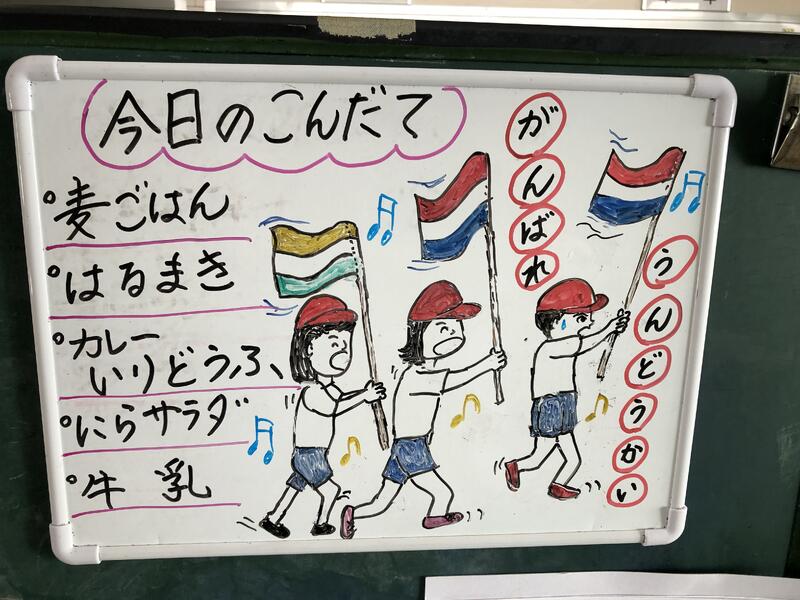 今日のこんだて
麦ごはん
はるまき
カレー
いりどうふ
にらサラダ
牛乳
がんばれ
うんどうかい